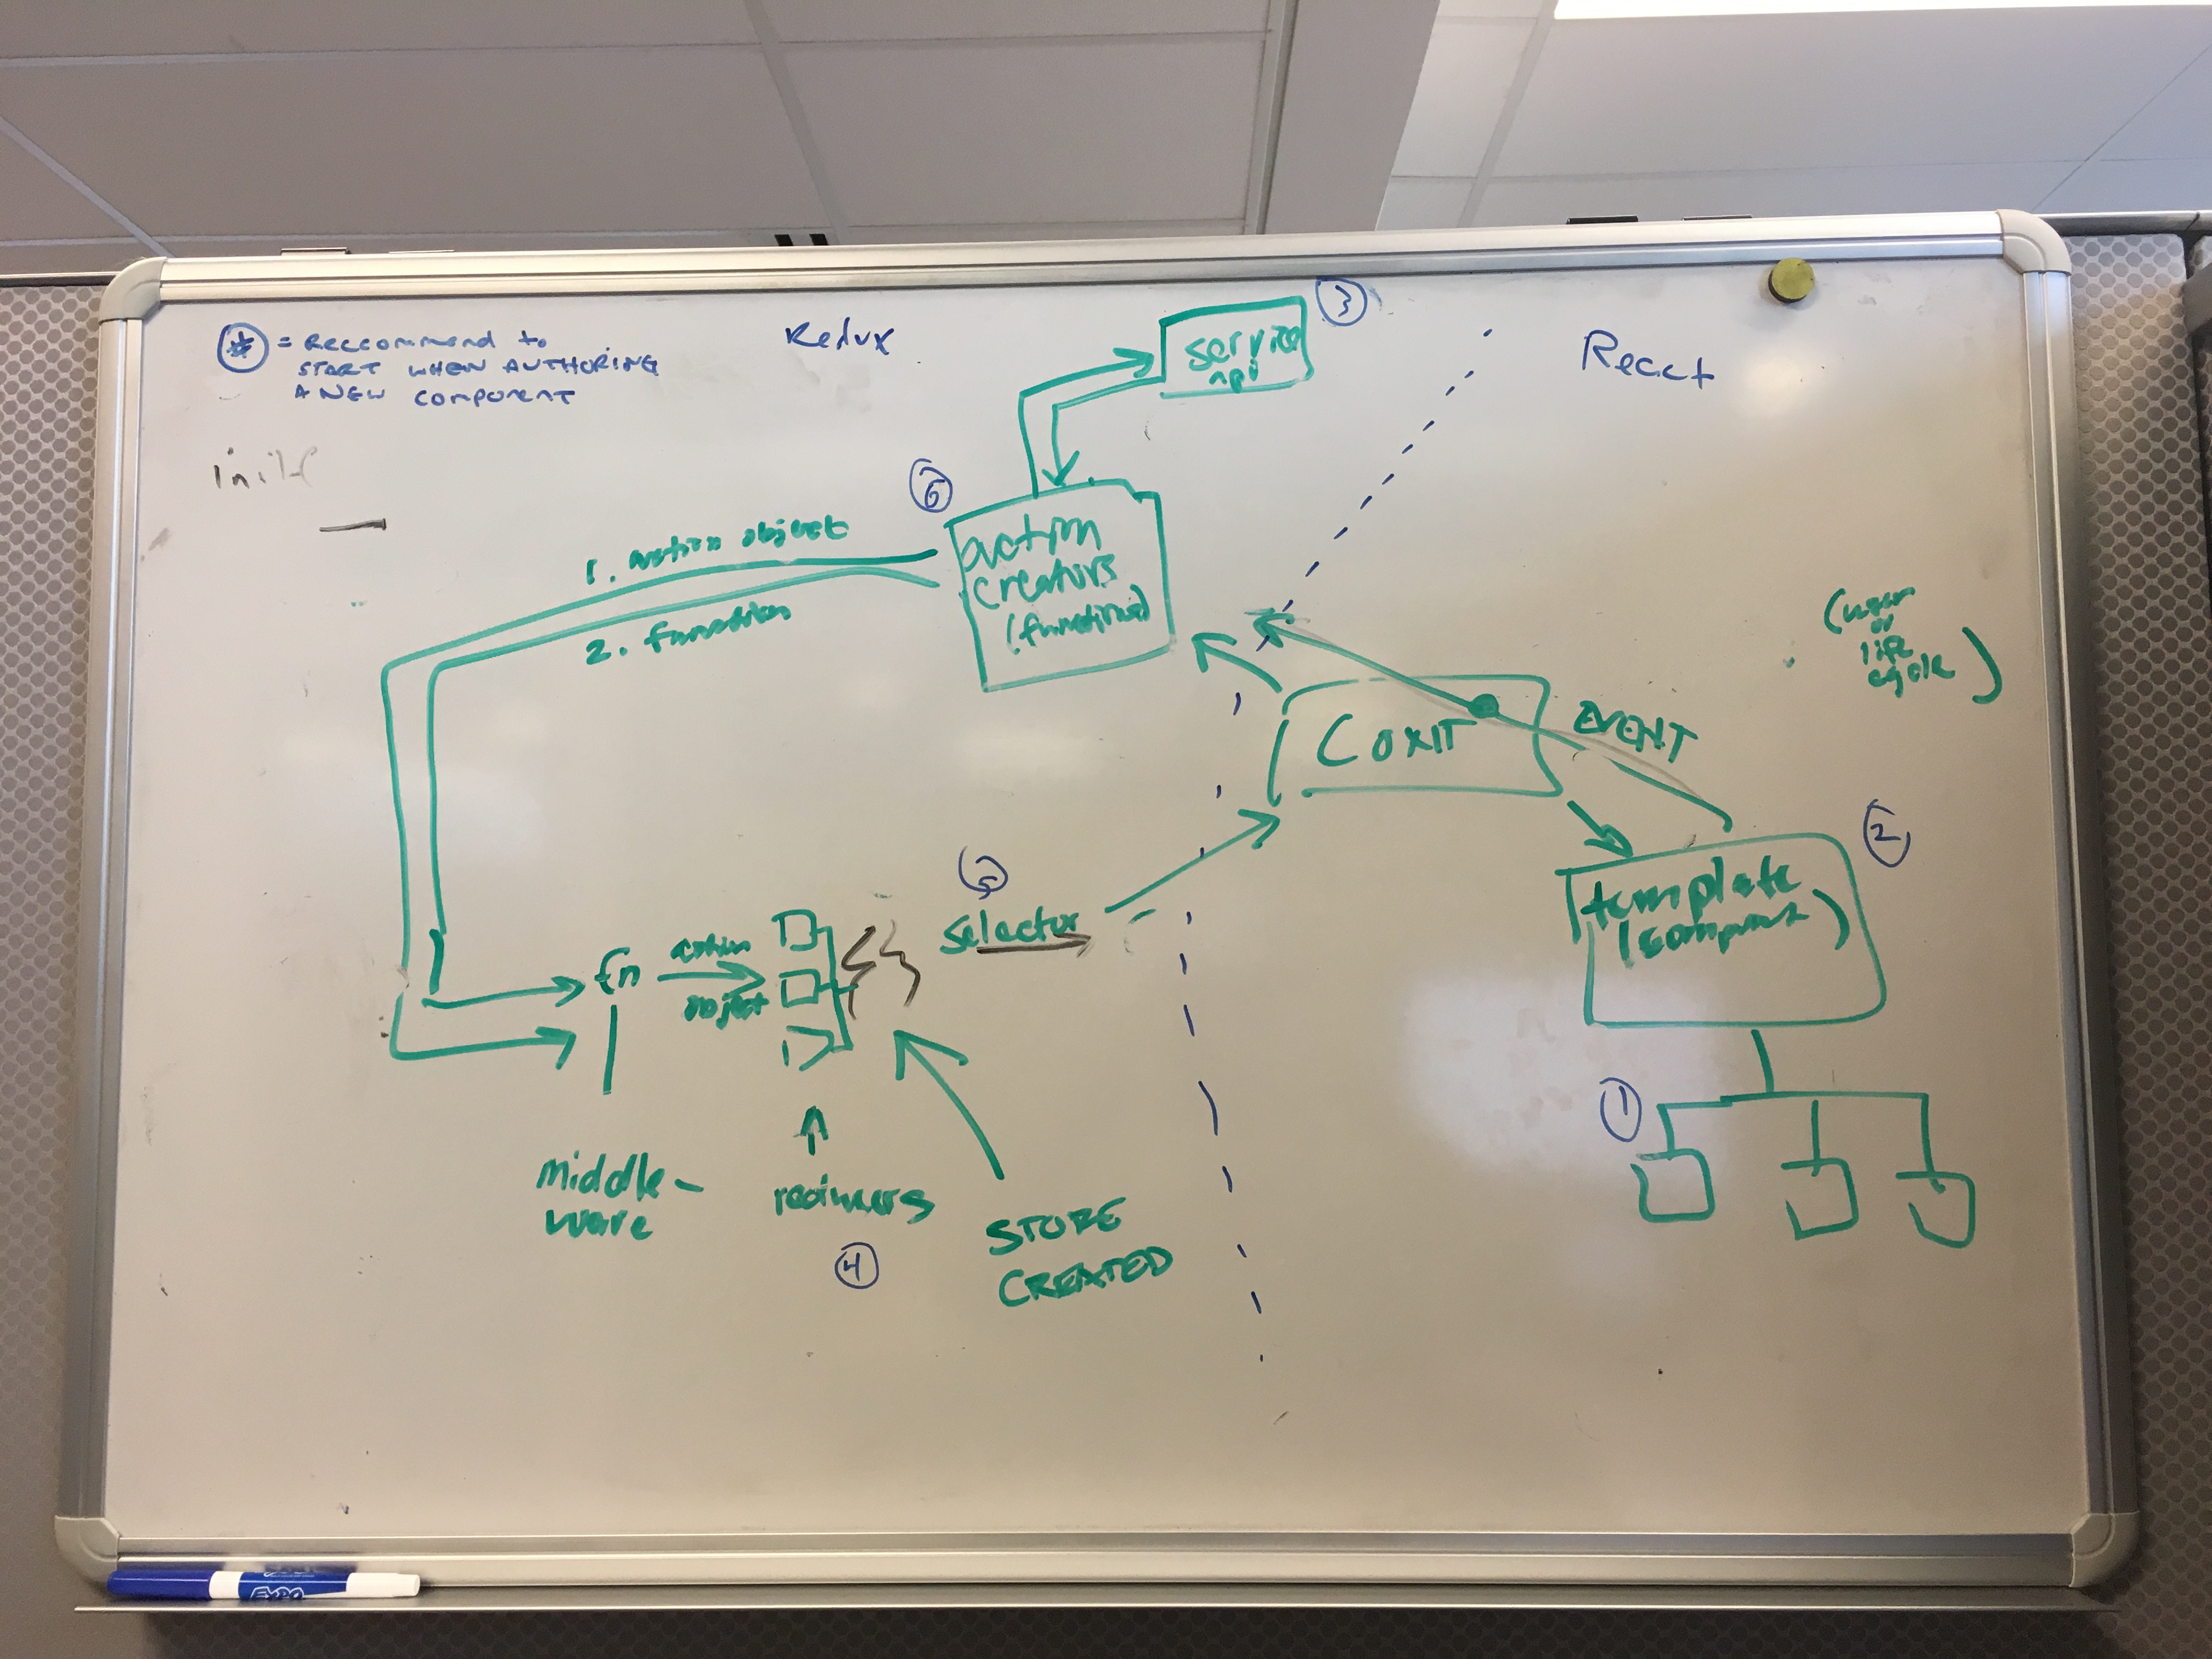 * = Reccommend to
START WHEN AUTHORING
A NEW COMPONENT
Redux
React
3
service
api
6
action
creators
(functions)
1. action object
2. function
(user
or
life
cycle)
EVENT
2
template
(component)
1
5
selector
fn
action
object
middle-
ware
reducers
4
STORE
CREATED
EXPO